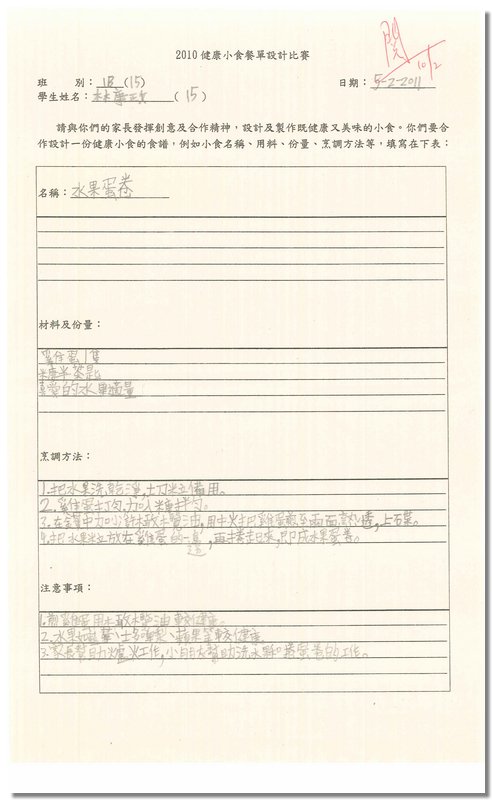 2010 健康小食餐單設計比賽
閱 10/2
班 別：1B (15) 日期：5-2-2011
學生姓名： （15）
請與你們的家長發揮創意及合作精神，設計及製作既健康又美味的小食。你們要合
作設計一份健康小食的食譜，例如小食名稱、用料、份量、烹調方法等，填寫在下表：
名稱：水果蛋卷
材料及份量：
雞蛋 1隻
糖半茶匙
喜愛的水果適量
烹調方法：
1.把水果洗乾淨，切粒備用。
2.雞蛋打勻，加入糖拌勻。
3.在鑊中加少許橄欖油，用中火把雞蛋煎至兩面熟透，上碟。
4.把水果粒放在雞蛋的一邊，再捲起來，即成水果蛋卷。
注意事項：
1.煎雞蛋用橄欖油較健康。
2.水果如 、士多啤梨、蘋果等較健康
3.家長幫助爐火工作，小朋友幫助洗水果和捲蛋卷的工作。